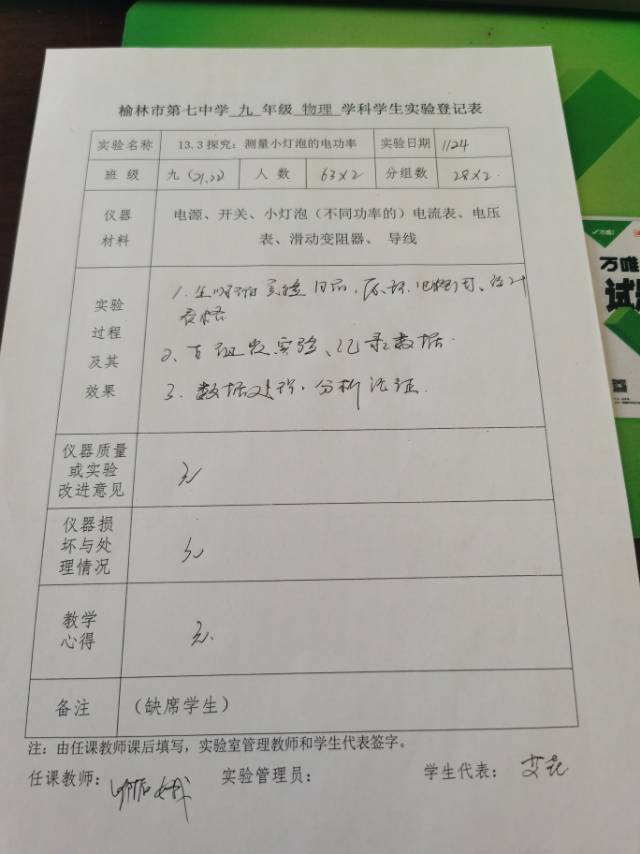 榆林市第七中学 九 年级 物理 学科学生实验登记表
实验名称 13.3探究：测量小灯泡的电功率 实验日期 1124
班 级 九(21,22) 人 数 63×2 分组数 28×2
仪器材料
电源、开关、小灯泡（不同功率的）电流表、电压
表、滑动变阻器、 导线
实验
过程
及其
效果
1. 实验
表格
2、实验、记录数据.
3. 数据处理. 分析论证.
仪器质量
或实验
改进意见
无
仪器损
坏与处
理情况
无
教学
心得
无.
备注 （缺席学生）
注：由任课教师课后填写，实验室管理教师和学生代表签字。
任课教师： 实验管理员： 学生代表： 艾
万唯
试题